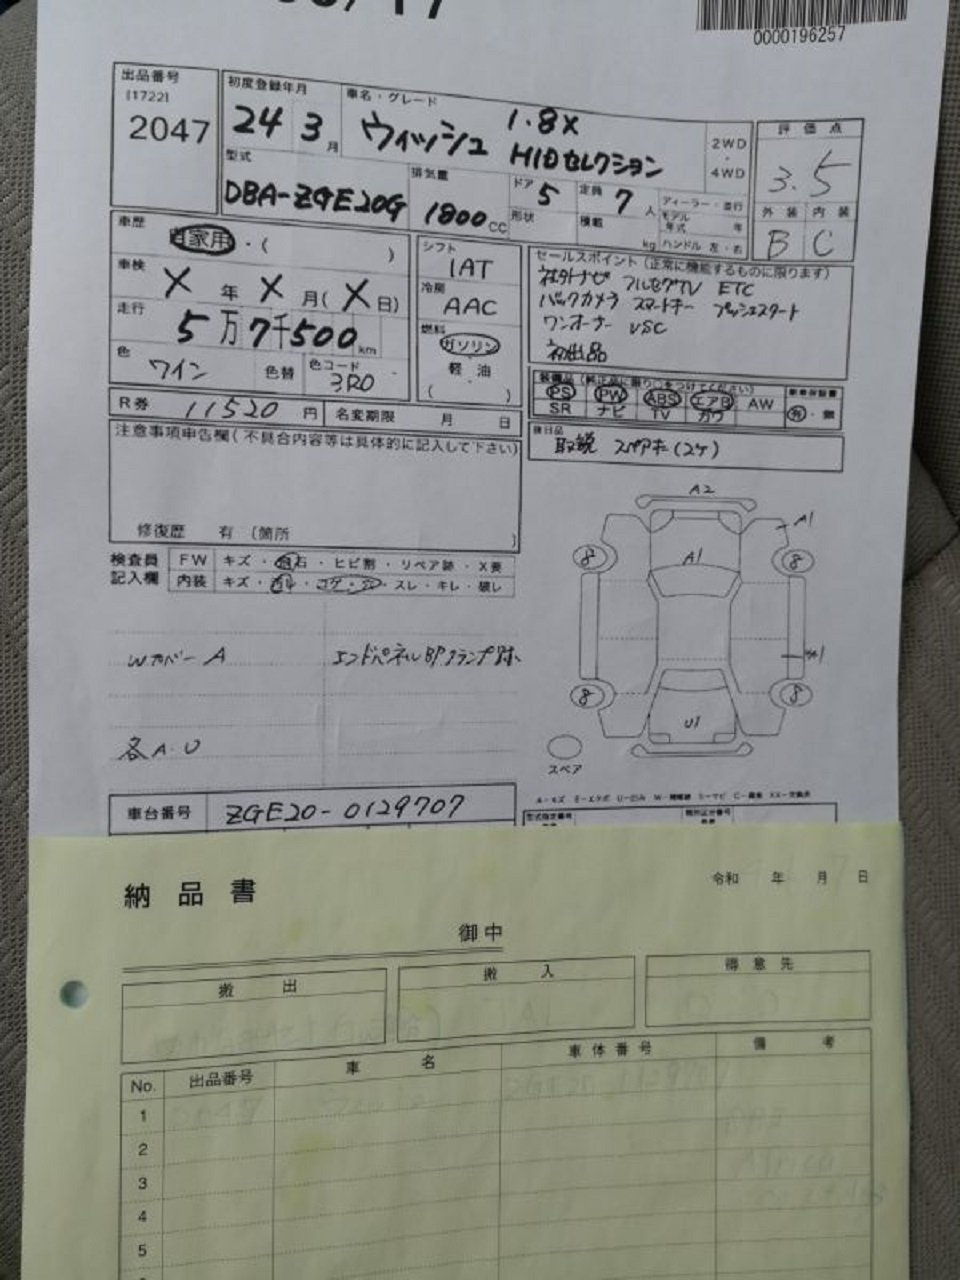 0000196257
出品番号
[1722]
2047
初度登録年月
24 3月
車名・グレード
ウィッシュ 1.8X
HIDセレクション
2WD
・
4WD
評価点
3.5
外装 内装
B C
型式
DBA-ZGE20G
排気量
1800cc
ドア 5
定員 7人
形状
積載 kg
ディーラー・並行
モデル年式 年
ハンドル 左・右
車歴
自家用・( )
車検
X年X月(X日)
走行
5万7千500km
色 ワイン 色替
色コード
3R0
シフト
IAT
冷房
AAC
燃料
ガソリン
・
軽油
( )
セールスポイント(正常に機能するものに限ります)
社外ナビ フルセグTV ETC
バックカメラ スマートキー プッシュスタート
ワンオーナー VSC
初出品
装備品(純正品に限り○をつけてください)
PS PW ABS エアB AW
SR ナビ TV カワ
有・無
後日品
取説 スペアキー(2ケ)
R券 11520円 名変期限 月 日
注意事項申告欄(不具合内容等は具体的に記入して下さい)
修復歴 有 (箇所 )
検査員
記入欄
FW キズ・飛石・ヒビ割・リペア跡・X要
内装 キズ・コゲ・スレ・キレ・破レ
Wカバー A
エンドパネルBPクランプ跡
各A・U
A2
A1
A1
8
8
8
8
U1
スペア
車台番号 ZGE20-0129707
型式指定番号
類別区分番号
納品書
令和 年 月 日
御中
搬出
搬入
得意先
No.
出品番号
車名
車体番号
備考
1
2
3
4
5